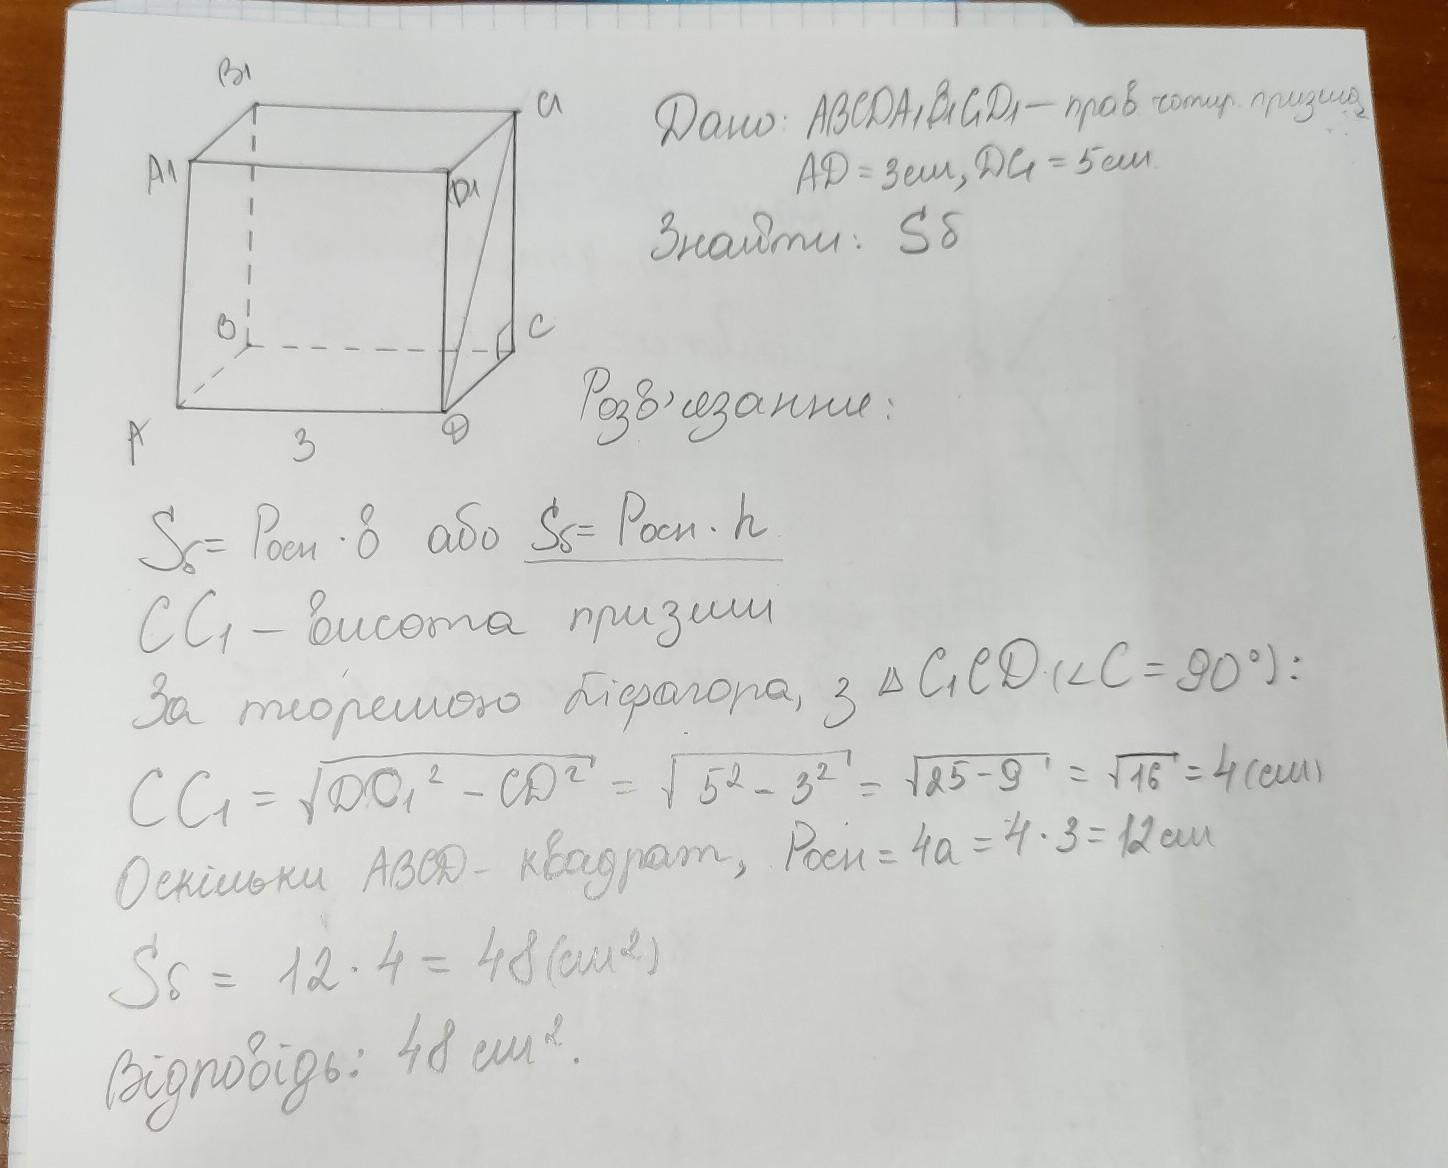 B1
C1
A1
D1
B
C
A
D
3
Дано: ABCDA1B1C1D1 – прав чотир. призма,
AD = 3см, DC1 = 5см
Знайти: Sб
Розв'язання:
Sб = Pосн · b або Sб = Pосн · h
CC1 – висота призми
За теоремою Піфагора, з △ C1CD (∠C = 90°):
CC1 = √DC1² – CD² = √5² – 3² = √25 – 9 = √16 = 4 (см)
Оскільки ABCD – квадрат, Pосн = 4a = 4 · 3 = 12 см
Sб = 12 · 4 = 48 (см²)
Відповідь: 48 см².